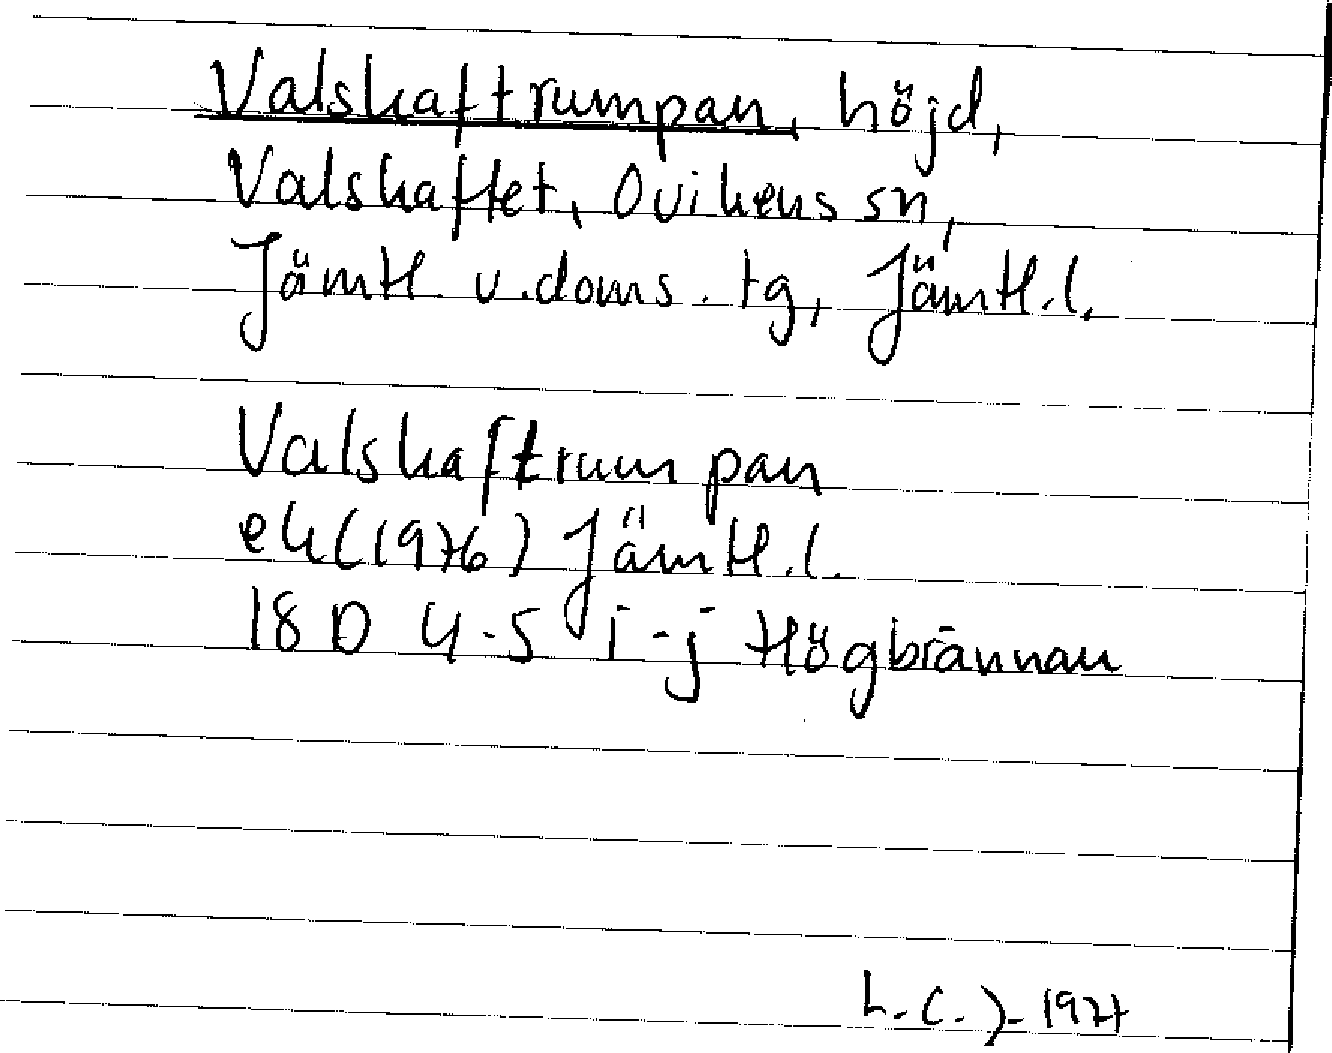 Valskaftrumpan, höjd,
Valskaftet, Ovikens sn,
Jämtl. v. doms. tg, Jämtl. l.
Valskaftrumpan
ek (1976) Jämtl. l.
18 D 4-5 i-j Högbrännan
L. C. J. 1977